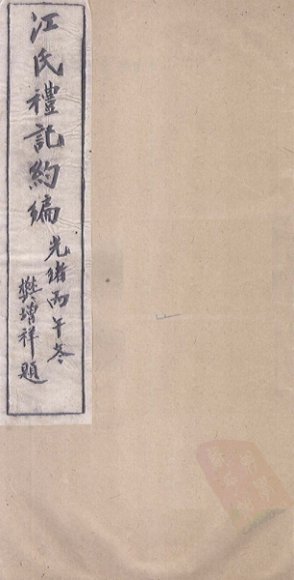 江氏禮記約編
光緒丙午冬
樊增祥題